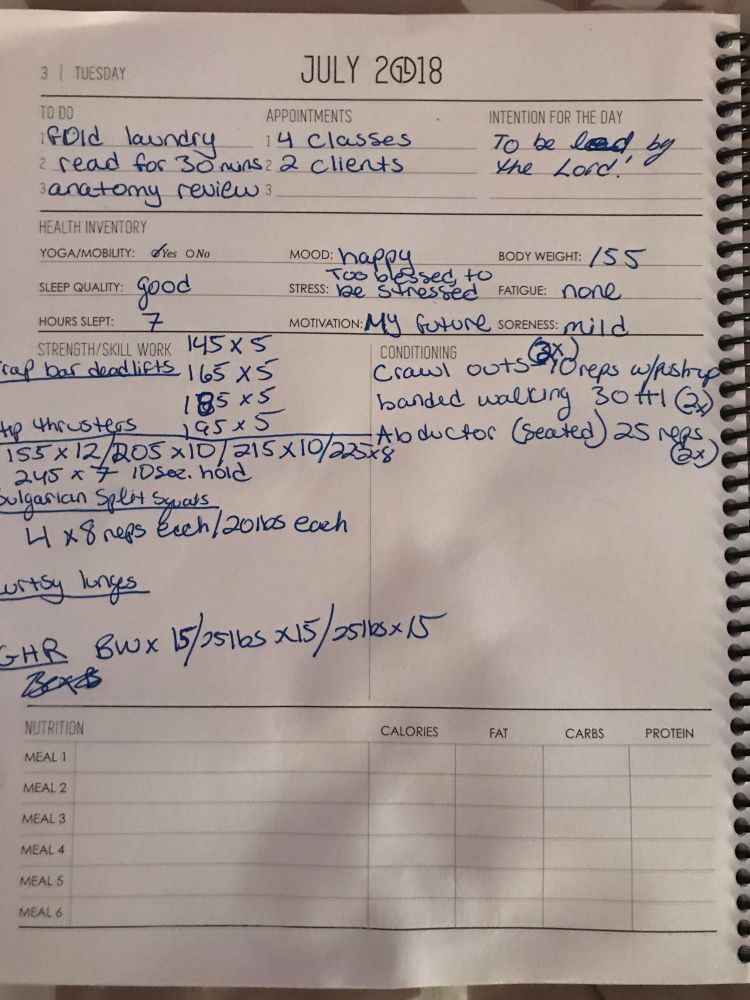 3 | TUESDAY
JULY 2018
TO DO
APPOINTMENTS
INTENTION FOR THE DAY
1 fold laundry
1 4 classes
To be lead by
2 read for 30 mins
2 2 clients
the Lord!
3 anatomy review
3
HEALTH INVENTORY
YOGA/MOBILITY: Yes No
MOOD: happy
BODY WEIGHT: 155
SLEEP QUALITY: good
STRESS: Too blessed, to
be stressed
FATIGUE: none
HOURS SLEPT: 7
MOTIVATION: My future
SORENESS: mild
STRENGTH/SKILL WORK
145 x 5
rap bar deadlifts 165 x 5
185 x 5
195 x 5
hip thrusters
155 x 12/205 x 10/215 x 10/225x8
245 x 7 10sec. hold
ulgarian Split Squats
4 x 8 reps each/20lbs each
urtsy lunges
GHR BW x 15/25lbs x15/25lbs x 15
CONDITIONING
Crawl outs 10 reps w/pushup
(2x)
banded walking 30 ft (2x)
Abductor (seated) 25 reps
(2x)
NUTRITION
CALORIES
FAT
CARBS
PROTEIN
MEAL 1
MEAL 2
MEAL 3
MEAL 4
MEAL 5
MEAL 6